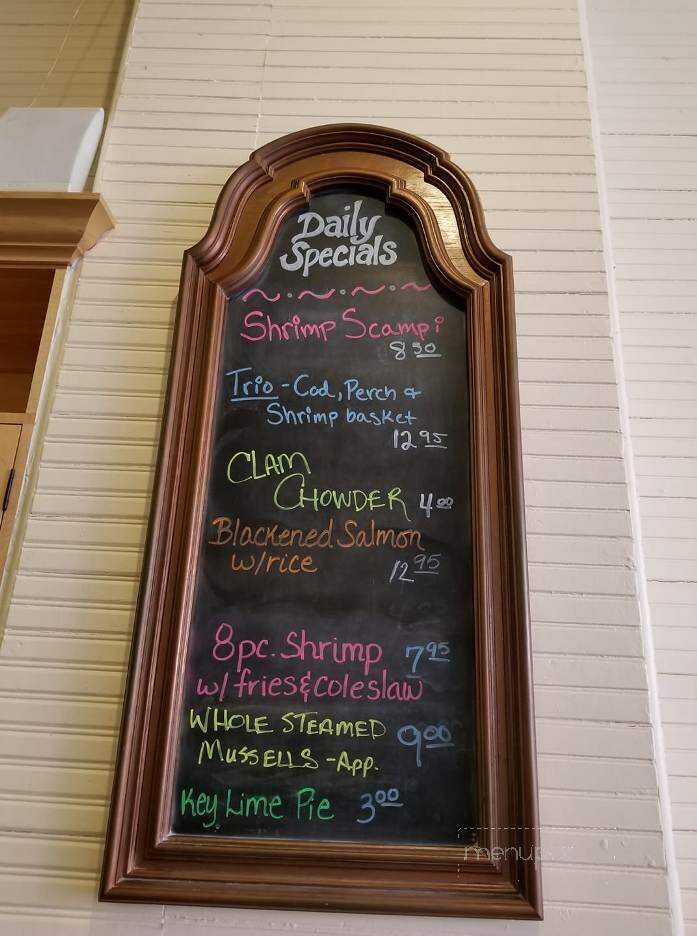 Daily
Specials
Shrimp Scampi
8 50
Trio - Cod, Perch &
Shrimp basket
12 95
CLAM
CHOWDER 4 00
Blackened Salmon
w/rice
12 95
8pc. Shrimp 7 95
w/ fries & coleslaw
WHOLE STEAMED
MUSSELLS - App. 9 00
Key Lime Pie 3 00